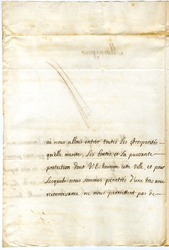 où nous allons entrer toutes les prosperités
qu'elle merite, Les bontés, et la puissante
protection dont V.E. honnore cette ville, et pour
lesquels nous sommes penetrés d'une tres vive
reconnoissance ne nous permettent pas de